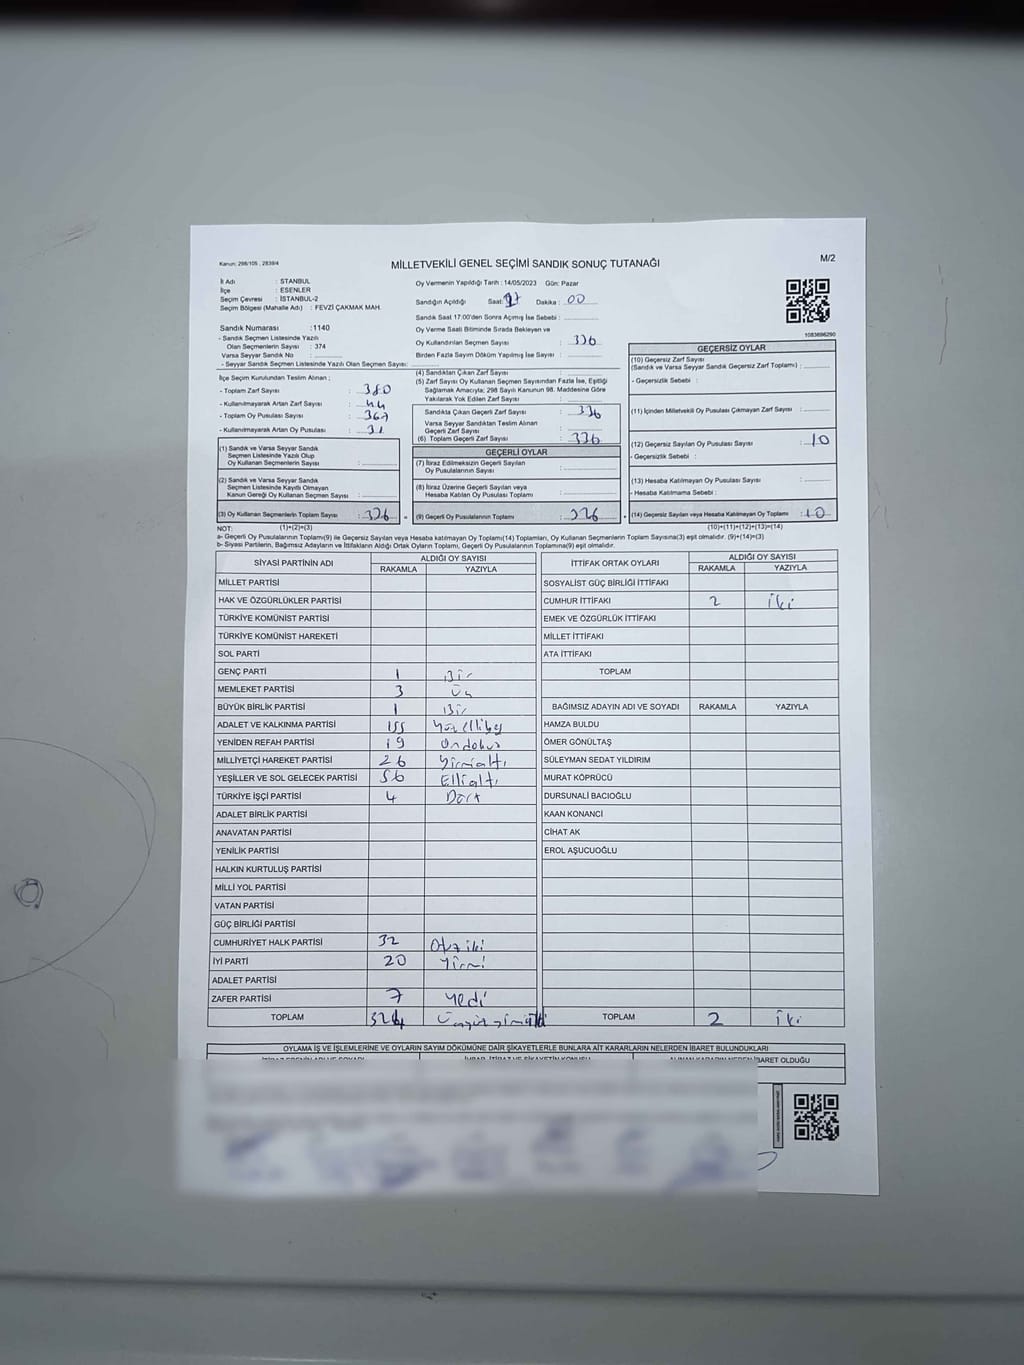 Kanun: 298/105 , 2839/4
MİLLETVEKİLİ GENEL SEÇİMİ SANDIK SONUÇ TUTANAĞI
M/2
İl Adı : İSTANBUL
İlçe : ESENLER
Seçim Çevresi : İSTANBUL-2
Seçim Bölgesi (Mahalle Adı) : FEVZİ ÇAKMAK MAH.
Sandık Numarası :1140
- Sandık Seçmen Listesinde Yazılı
Olan Seçmenlerin Sayısı : 374
Varsa Seyyar Sandık No :
- Seyyar Sandık Seçmen Listesinde Yazılı Olan Seçmen Sayısı:
İlçe Seçim Kurulundan Teslim Alınan ;
- Toplam Zarf Sayısı : 380
- Kullanılmayarak Artan Zarf Sayısı : 44
- Toplam Oy Pusulası Sayısı : 367
- Kullanılmayarak Artan Oy Pusulası : 31
(1) Sandık ve Varsa Seyyar Sandık
Seçmen Listesinde Yazılı Olup
Oy Kullanan Seçmenlerin Sayısı :
(2) Sandık ve Varsa Seyyar Sandık
Seçmen Listesinde Kayıtlı Olmayan
Kanun Gereği Oy Kullanan Seçmen Sayısı :
(3) Oy Kullanan Seçmenlerin Toplam Sayısı : 336
Oy Vermenin Yapıldığı Tarih : 14/05/2023 Gün: Pazar
Sandığın Açıldığı Saat: 17 Dakika : 00
Sandık Saat 17:00'den Sonra Açımış İse Sebebi :
Oy Verme Saati Bitiminde Sırada Bekleyen ve
Oy Kullandırılan Seçmen Sayısı : 336
Birden Fazla Sayım Döküm Yapılmış İse Sayısı :
(4) Sandıktan Çıkan Zarf Sayısı :
(5) Zarf Sayısı Oy Kullanan Seçmen Sayısından Fazla İse, Eşitliği
Sağlamak Amacıyla; 298 Sayılı Kanunun 98. Maddesine Göre
Yakılarak Yok Edilen Zarf Sayısı :
Sandıkta Çıkan Geçerli Zarf Sayısı : 336
Varsa Seyyar Sandıktan Teslim Alınan
Geçerli Zarf Sayısı :
(6) Toplam Geçerli Zarf Sayısı : 336
GEÇERLİ OYLAR
(7) İtiraz Edilmeksizin Geçerli Sayılan
Oy Pusulalarının Sayısı :
(8) İtiraz Üzerine Geçerli Sayılan veya
Hesaba Katılan Oy Pusulası Toplamı :
= (9) Geçerli Oy Pusulalarının Toplamı : 326
1083696290
GEÇERSİZ OYLAR
(10) Geçersiz Zarf Sayısı
(Sandık ve Varsa Seyyar Sandık Geçersiz Zarf Toplamı) :
- Geçersizlik Sebebi :
(11) İçinden Milletvekili Oy Pusulası Çıkmayan Zarf Sayısı :
(12) Geçersiz Sayılan Oy Pusulası Sayısı : 10
- Geçersizlik Sebebi :
(13) Hesaba Katılmayan Oy Pusulası Sayısı :
- Hesaba Katılmama Sebebi :
+ (14) Geçersiz Sayılan veya Hesaba Katılmayan Oy Toplamı : 10
NOT: (1)+(2)=(3) (10)+(11)+(12)+(13)=(14)
a- Geçerli Oy Pusulalarının Toplamı(9) ile Geçersiz Sayılan veya Hesaba katılmayan Oy Toplamı(14) Toplamları, Oy Kullanan Seçmenlerin Toplam Sayısına(3) eşit olmalıdır. (9)+(14)=(3)
b- Siyasi Partilerin, Bağımsız Adayların ve İttifakların Aldığı Ortak Oyların Toplamı, Geçerli Oy Pusulalarının Toplamına(9) eşit olmalıdır.
SİYASİ PARTİNİN ADI ALDIĞI OY SAYISI
RAKAMLA YAZIYLA
MİLLET PARTİSİ
HAK VE ÖZGÜRLÜKLER PARTİSİ
TÜRKİYE KOMÜNİST PARTİSİ
TÜRKİYE KOMÜNİST HAREKETİ
SOL PARTİ
GENÇ PARTİ 1 Bir
MEMLEKET PARTİSİ 3 Üç
BÜYÜK BİRLİK PARTİSİ 1 Bir
ADALET VE KALKINMA PARTİSİ 155 Yüzellibeş
YENİDEN REFAH PARTİSİ 19 Ondokuz
MİLLİYETÇİ HAREKET PARTİSİ 26 Yirmialtı
YEŞİLLER VE SOL GELECEK PARTİSİ 56 Ellialtı
TÜRKİYE İŞÇİ PARTİSİ 4 Dört
ADALET BİRLİK PARTİSİ
ANAVATAN PARTİSİ
YENİLİK PARTİSİ
HALKIN KURTULUŞ PARTİSİ
MİLLİ YOL PARTİSİ
VATAN PARTİSİ
GÜÇ BİRLİĞİ PARTİSİ
CUMHURİYET HALK PARTİSİ 32 Otuz iki
İYİ PARTİ 20 Yirmi
ADALET PARTİSİ
ZAFER PARTİSİ 7 Yedi
TOPLAM 324
İTTİFAK ORTAK OYLARI ALDIĞI OY SAYISI
RAKAMLA YAZIYLA
SOSYALİST GÜÇ BİRLİĞİ İTTİFAKI
CUMHUR İTTİFAKI 2 İki
EMEK VE ÖZGÜRLÜK İTTİFAKI
MİLLET İTTİFAKI
ATA İTTİFAKI
TOPLAM
BAĞIMSIZ ADAYIN ADI VE SOYADI RAKAMLA YAZIYLA
HAMZA BULDU
ÖMER GÖNÜLTAŞ
SÜLEYMAN SEDAT YILDIRIM
MURAT KÖPRÜCÜ
DURSUNALİ BACIOĞLU
KAAN KONANCİ
CİHAT AK
EROL AŞUCUOĞLU
TOPLAM 2 İki
OYLAMA İŞ VE İŞLEMLERİNE VE OYLARIN SAYIM DÖKÜMÜNE DAİR ŞİKAYETLERLE BUNLARA AİT KARARLARIN NELERDEN İBARET BULUNDUKLARI